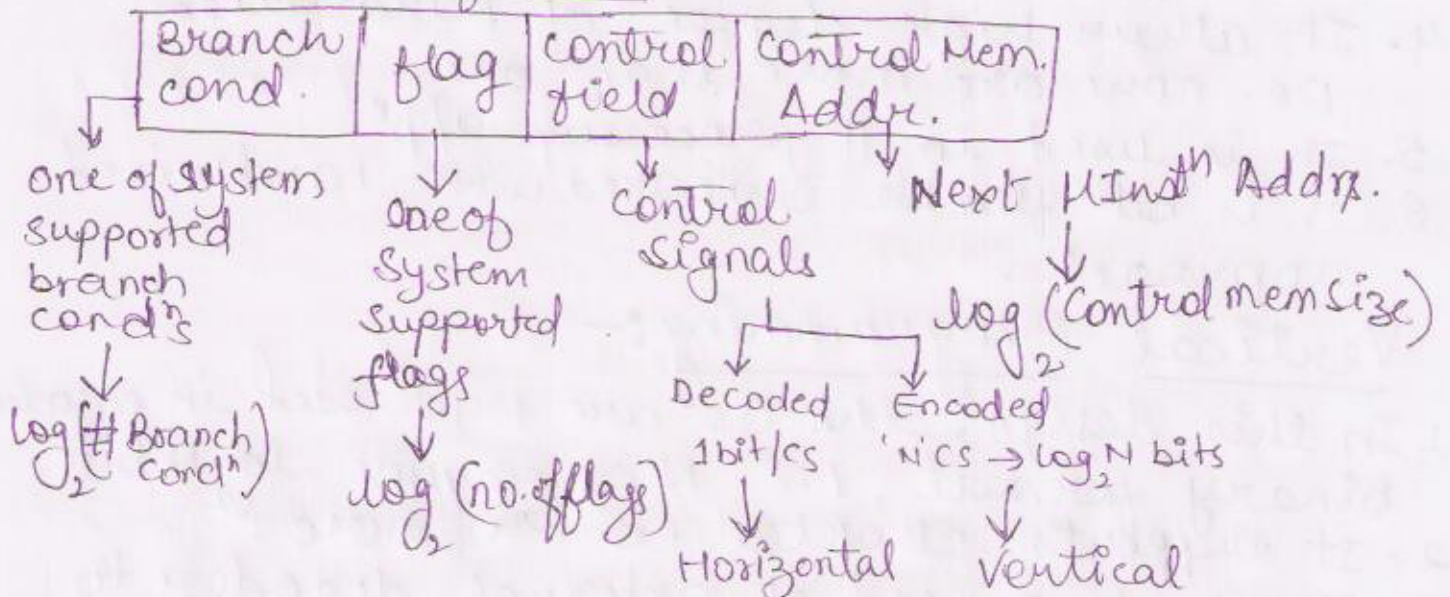 Branch cond.
flag
control field
control Mem. Addr.
one of system supported branch condⁿs
log₂(# Branch Condⁿ)
one of system supported flags
log₂(no. of flags)
control signals
Decoded
1bit/cs
Horizontal
Encoded
'N'CS → log₂N bits
Vertical
Next μInstⁿ Addr.
log₂(Control mem size)